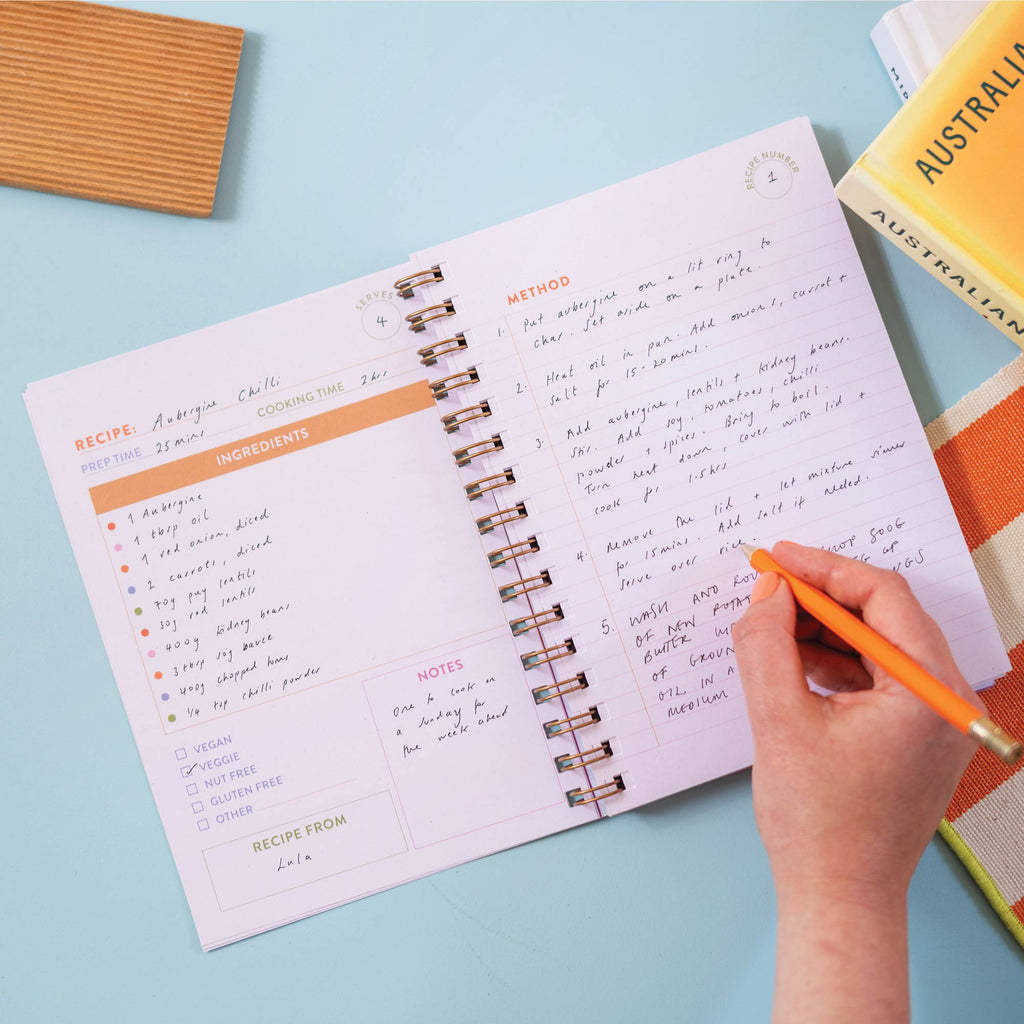 SERVES
4
RECIPE: Aubergine Chilli
PREP TIME 25 mins COOKING TIME 2 hrs
INGREDIENTS
1 Aubergine
1 tbsp oil
1 red onion, diced
2 carrots, diced
70g puy lentils
30g red lentils
400g kidney beans
3 tbsp soy sauce
400g chopped toms
1/4 tsp chilli powder
VEGAN
VEGGIE
NUT FREE
GLUTEN FREE
OTHER
NOTES
One to cook on
a sunday for
the week ahead
RECIPE FROM
Lula
RECIPE NUMBER
1
METHOD
1. Put aubergine on a lit ring to
char. Set aside on a plate.
2. Heat oil in pan. Add onions, carrot +
salt for 15-20 mins.
3. Add aubergine, lentils + kidney beans.
Stir. Add soy, tomatoes, chilli
powder + spices. Bring to boil
Turn heat down, cover with lid +
cook for 1.5 hrs
4. Remove the lid + let mixture simmer
for 15 mins. Add salt if needed.
Serve over rice.
5. WASH AND 500G
OF NEW UP
BUTTER
OF
OIL IN A
MEDIUM
AUSTRALIA
AUSTRALIAN